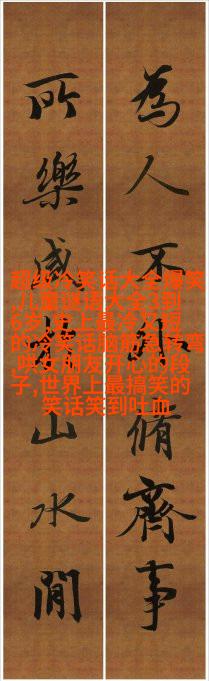 為人不外脩齊事
所樂咸山水間
超级冷笑话大全爆笑
,儿童谜语大全3到
6岁,史上最冷又短
的冷笑话脑筋急转弯
,哄女朋友开心的段
子,世界上最搞笑的
笑话笑到吐血